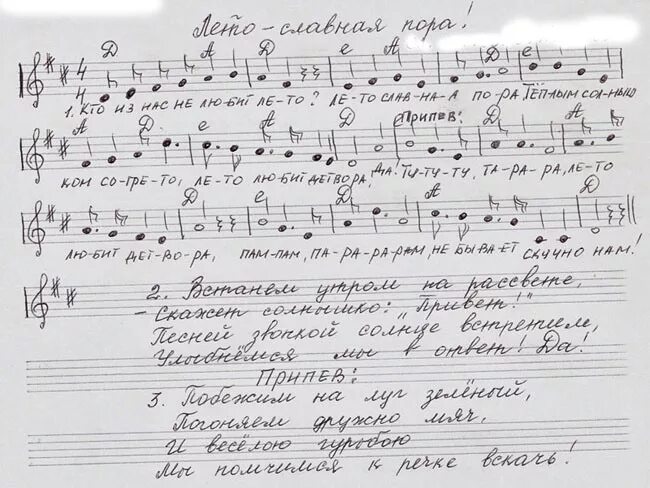 Лето - славная пора!
Д А Д е А Д е
4
4
1. КТО ИЗ НАС НЕ ЛЮ-БИТ ЛЕ-ТО? ЛЕ-ТО СЛАВ-НА-А ПО-РА. ТЁПЛЫМ СОЛ-НЫШ
А Д е Д ПРИПЕВ: А
КОМ СО-ГРЕ-ТО, ЛЕ-ТО ЛЮ-БИТ ДЕТВОРА, ДА! ТУ-ТУ-ТУ, ТА-РА-РА, ЛЕ-ТО
Д е Д А Д
ЛЮ-БИТ ДЕТ-ВО-РА, ПАМ-ПАМ, ПА-РА-РА-РАМ, НЕ БЫВАЕТ СКУЧНО НАМ!
2. Встанем утром на рассвете,
- Скажет солнышко: „Привет!"
Песней звонкой солнце встретим,
Улыбнёмся мы в ответ! Да!
ПРИПЕВ:
3. Побежим на луг зелёный,
Погоняем дружно мяч,
И весёлою гурьбою
Мы помчимся к речке вскачь!